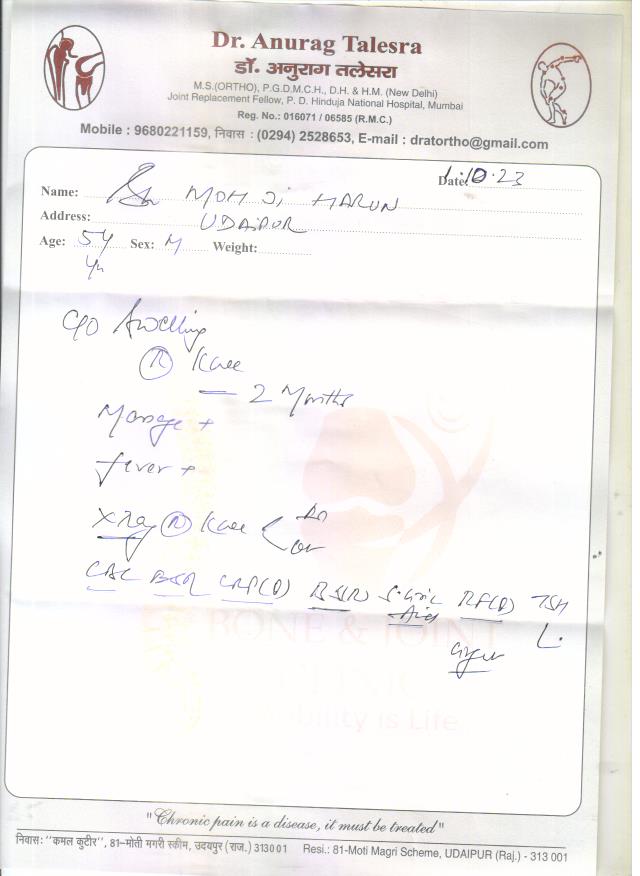 Dr. Anurag Talesra
डॉ. अनुराग तलेसरा
M.S.(ORTHO), P.G.D.M.C.H., D.H. & H.M. (New Delhi)
Joint Replacement Fellow, P. D. Hinduja National Hospital, Mumbai
Reg. No.: 016071 / 06585 (R.M.C.)
Mobile : 9680221159, निवास : (0294) 2528653, E-mail : dratortho@gmail.com
Date: 10.23
Name: MOH JI HARUN
Address: UDAIPUR
Age: 54 Yr Sex: M Weight:
C/O Swelling
(R) Knee
— 2 Months
Massage +
fever +
X Ray (R) Knee
CBC CRP(Q) RF(Q) TSH
BONE & JOINT
CLINIC
Mobility is Life
"Chronic pain is a disease, it must be treated"
निवास: "कमल कुटीर", 81-मोती मगरी स्कीम, उदयपुर (राज.) 313001 Resi.: 81-Moti Magri Scheme, UDAIPUR (Raj.) - 313 001